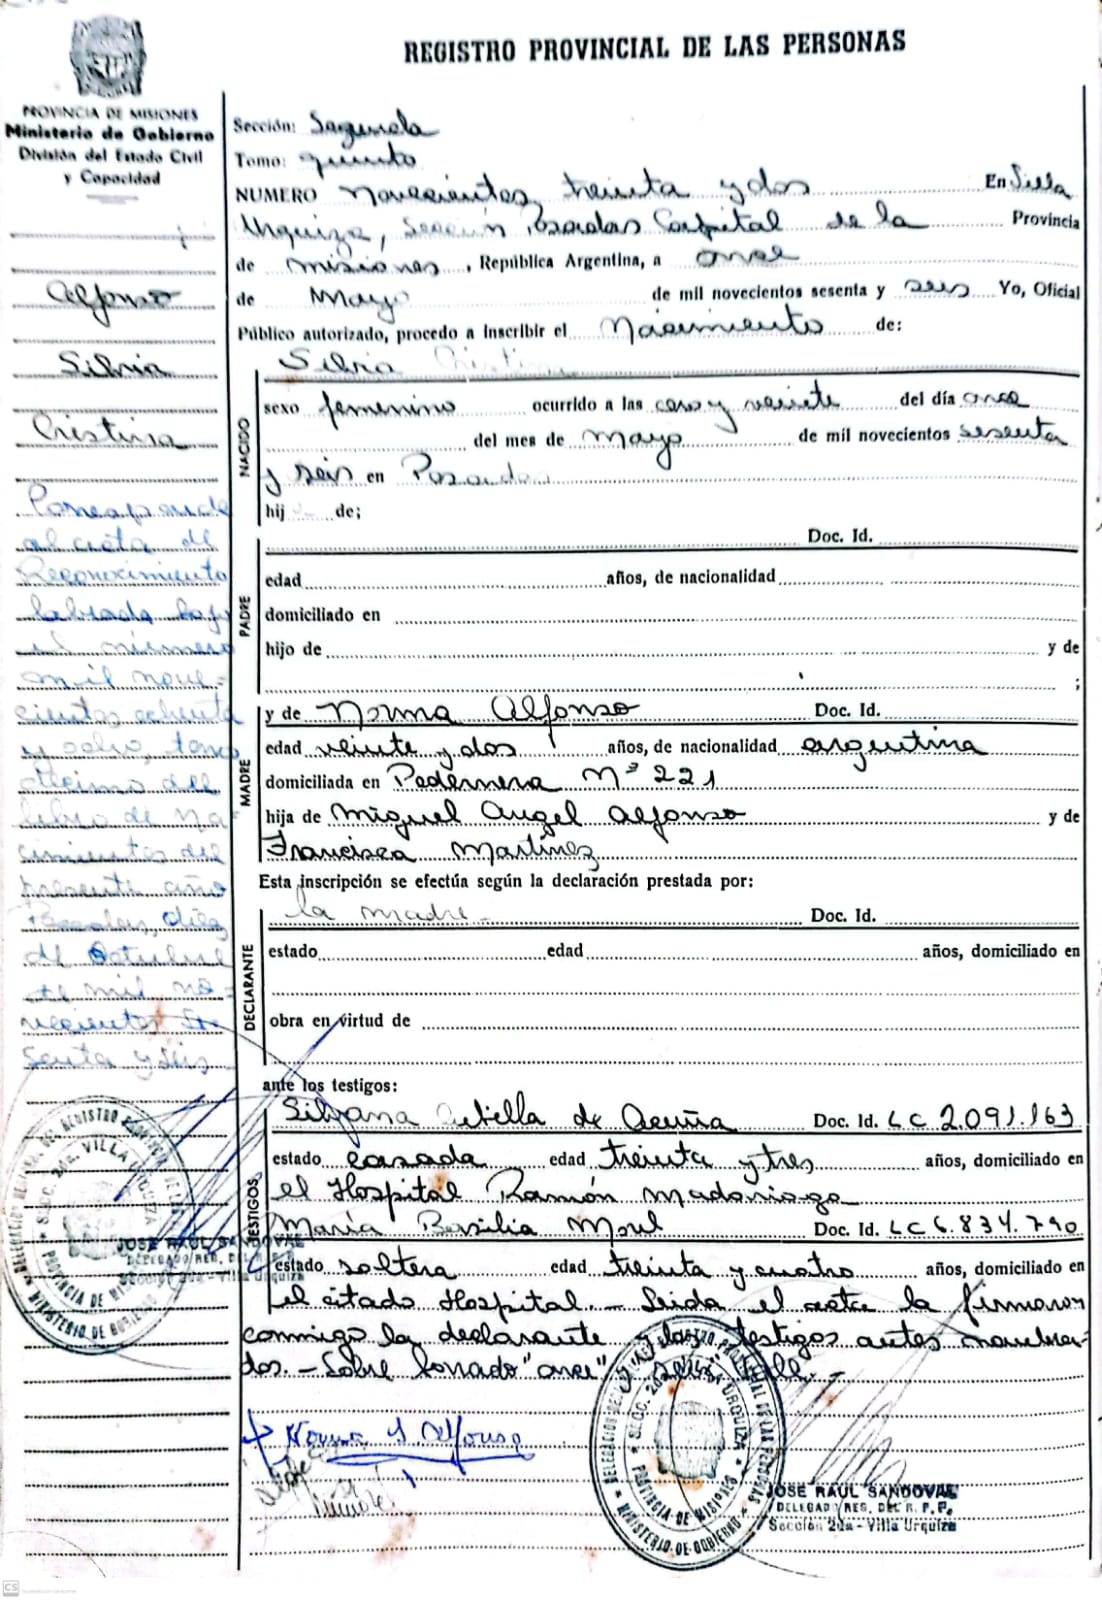 REGISTRO PROVINCIAL DE LAS PERSONAS
PROVINCIA DE MISIONES
Ministerio de Gobierno
División del Estado Civil
y Capacidad
Alfonso
Silvia
Cristina
Corresponde
al acta de
Reconocimiento
labrada bajo
el número
mil nove-
cientos ochenta
y ocho, tomo
décimo del
libro de na-
cimientos del
presente año
Posadas, diez
de Octubre
de mil no-
vecientos se-
senta y seis
Sección: Segunda
Tomo: quinto
NUMERO novecientos treinta y dos En Villa
Urquiza, Sección Posadas Capital de la Provincia
de Misiones, República Argentina, a once
de Mayo de mil novecientos sesenta y seis Yo, Oficial
Público autorizado, procedo a inscribir el Nacimiento de:
NACIDO
Silvia Cristina
sexo femenino ocurrido a las cero y veinte del día once
del mes de Mayo de mil novecientos sesenta
y seis en Posadas
hij de;
PADRE
Doc. Id.
edad años, de nacionalidad
domiciliado en
hijo de y de
;
MADRE
y de Norma Alfonso Doc. Id.
edad veinte y dos años, de nacionalidad argentina
domiciliada en Pedernera Nº 221
hija de Miguel Angel Alfonso y de
Francisca Martínez
Esta inscripción se efectúa según la declaración prestada por:
DECLARANTE
la madre- Doc. Id.
estado edad años, domiciliado en
obra en virtud de
ante los testigos:
TESTIGOS
Silvana de Acuña Doc. Id. LC 2.091.163
estado casada edad treinta y tres años, domiciliado en
el Hospital Ramón Madariaga
María Basilia Doc. Id. LC 6.834.790
estado soltera edad treinta y cuatro años, domiciliado en
el citado Hospital.- Leida el acta la firmaron
conmigo la declarante y los testigos antes nombra-
dos.- Sobre borrado "once", Vale.-
Norma Alfonso
DELEGACION DEL REGISTRO PROVINCIAL DE LAS PERSONAS
SECC. 2da. VILLA URQUIZA
PROVINCIA DE MISIONES
MINISTERIO DE GOBIERNO
JOSE RAUL SANDOVAL
DELEGADO REG. DEL R. P. P.
Sección 2da - Villa Urquiza
DELEGACION DEL REGISTRO PROVINCIAL DE LAS PERSONAS
SECC. 2da. VILLA URQUIZA
PROVINCIA DE MISIONES
MINISTERIO DE GOBIERNO
JOSE RAUL SANDOVAL
DELEGADO RES. DEL R. P. P.
Sección 2da - Villa Urquiza
CS